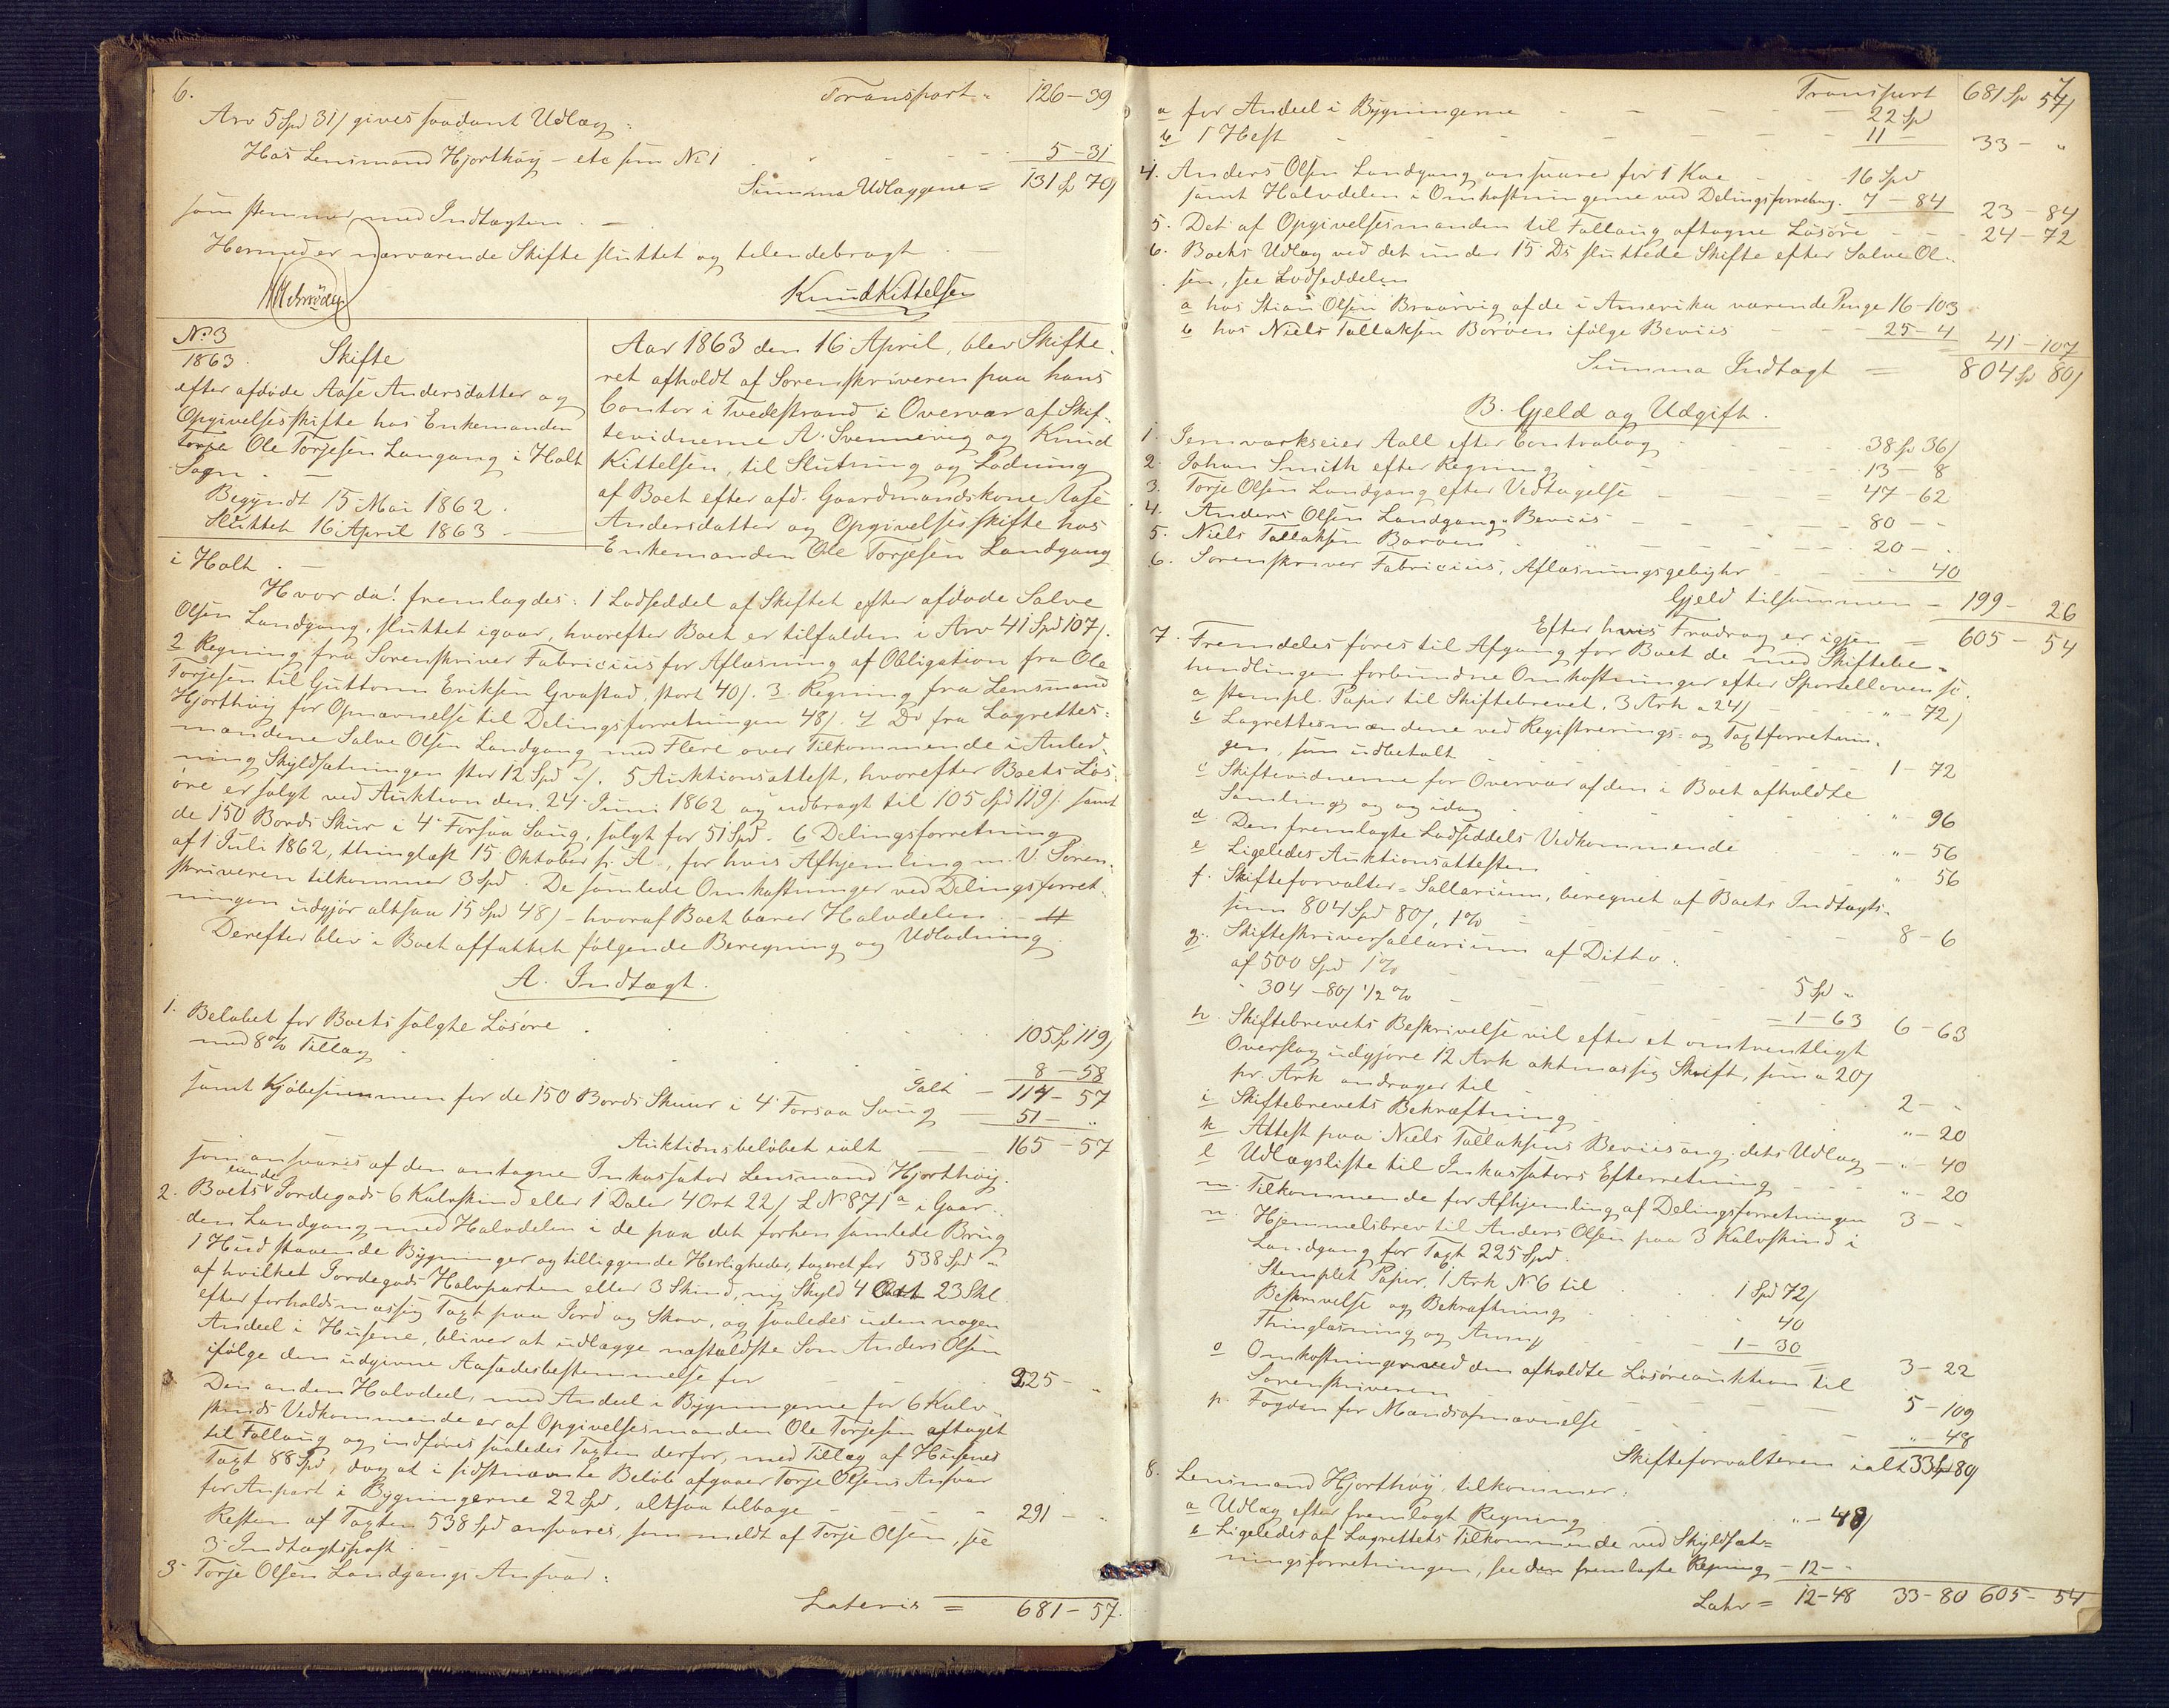 6.
Transport = 126 – 39
Arv 5 Spd 31/ gives saadant Udlæg:
Hos Lensmand Hjorthøy – etc som No 1 5 – 31
Summa Udlæggene = 131 Sp 70/
som stemmer med Indtægten. –
Hermed er nærværende Skifte sluttet og tilendebragt.
Knud Kittelsen
No 3
1863.
Skifte
efter afdøde Aase Andersdatter og
Opgivelsesskifte hos Enkemanden
Torje Ole Torjesen Langang i Holt
Sogn. –
Begyndt 15 Mai 1862.
Sluttet 16 April 1863. –
Aar 1863 den 16 April, blev Skifte-
ret afholdt af Sorenskriveren paa hans
Contor i Tvedestrand i Overvær af Skif-
tevidnerne A. Svennevig og Knud
Kittelsen, til Slutning og Lodning
af Boet efter afd. Gaardmandskone Aase
Andersdatter og Opgivelsesskifte hos
Enkemanden Ole Torjesen Landgang
i Holt. –
Hvor da! fremlagdes: 1 Lodseddel af Skiftet efter afdøde Salve
Olsen Landgang, sluttet igaar, hvorefter Boet er tilfalden i Arv 41 Spd 107/.
2 Regning fra Sorenskriver Fabricius for Aflæsning af Obligation fra Ole
Torjesen til Guttorm Eriksen Gvastad, stort 40/. 3. Regning fra Lensmand
Hjorthøy for Opnævnelse til Delingsforretningen 48/. 4 Do fra Lagrettes-
mændene Salve Olsen Landgang med Flere over Tilkommende i Anled-
ning Skyldsætningen stor 12 Spd "/. 5 Auktionsattest, hvorefter Boets Løs-
øre er solgt ved Auktion den 24 Juni 1862 og udbragt til 105 Spd 119/. samt
de 150 Bords Skur i 4 Forsaa Saug, solgt for 51 Spd. 6 Delingsforretning
af 1 Juli 1862, thinglæst 15 Oktober s. A., for hvis Afhjemling m. V. Soren-
skriveren tilkommer 3 Spd. De samlede Omkostninger ved Delingsforret-
ningen udgjør altsaa 15 Spd 48/ – hvoraf Boet bærer Halvdelen. –
Derefter blev i Boet affattet følgende Beregning og Udlodning.
A. Indtægt.
1. Beløbet for Boets solgte Løsøre 105 Sp 119/
med 8% Tillæg 8 – 58
Ialt – 114 – 57
samt Kjøbesummen for de 150 Bords Skuur i 4 Forsaa Saug 51 – "
Auktionsbeløbet ialt 165 – 57
som ansvares af den antagne Inkassator Lensmand Hjorthøy.
2. Boets eiende Jordegods 6 Kalvskind eller 1 Daler 4 Ort 22/ L No 871a i Gaar-
den Landgang med Halvdelen i de paa det forhen samlede Brug
1 Hud staaende Bygninger og tilliggende Herligheder, taxeret for 538 Spd "
af hvilket Jordegods Halvparten eller 3 Skind, ny Skyld 4 Ort 23 Skl.
efter forholdsmæssig Taxt paa Jord og Skov, og saaledes uden nogen
Andeel i Husene, bliver at udlægge næstældste Søn Anders Olsen
ifølge den udgivne Aasædesbestemmelse for 225 – "
3. Den anden Halvdeel, med Andeel i Bygningerne for 6 Kalv-
skinds Vedkommende er af Opgivelsesmanden Ole Torjesen aftaget
til Follaug og indføres saaledes Taxten derfor, med Tillæg af Husenes
Taxt 88 Spd, dog at i sidstnævnte Beløb afgaaer Torje Olsens Ansvar
for Anpart i Bygningerne 22 Spd, altsaa tilbage 291 – "
Resten af Taxten 538 Spd ansvares, som meldt af Torje Olsen, see
3 Indtægtspost. –
3 Torje Olsen Landgangs Ansvar:
Lateris = 681 – 57.
7
Transport 681 Sp 57/
a for Andeel i Bygningerne 22 Sp
b 1 Hest 11 – 33 – "
4. Anders Olsen Landgang ansvarer for 1 Koe 16 Spd
samt Halvdelen i Omkostningerne ved Delingsforretng. 7 – 84 23 – 84
5. Det af Opgivelsesmanden til Follaug aftagne Løsøre 24 – 72
6. Boets Udlæg ved det under 15 Ds sluttede Skifte efter Salve Ol-
sen, see Lodseddelen
a hos Stian Olsen Braarvig af de i Amerika værende Penge 16 – 103
b hos Niels Tallaksen Borøen ifølge Beviis 25 – 4 41 – 107
Summa Indtægt = 804 Sp 80/
B. Gjeld og Udgift.
1. Jernværkseier Aall efter Contrabog 38 Sp 36/
2. Johan Smith efter Regning 13 – 8
3. Torje Olsen Landgang efter Vedtagelse 47 – 62
4. Anders Olsen Landgang " Beviis 80 – "
5. Niels Tallaksen Borøen 20 – "
6. Sorenskriver Fabricius, Aflæsningsgebyhr " 40
Gjeld tilsammen – 199 – 26
Efter hvis Fradrag er igjen = 605 – 54
7. Fremdeles føres til Afgang for Boet de med Skiftebe-
handlingen forbundne Omkostninger efter Sportelloven sc.
a stempl. Papir til Skiftebrevet, 3 Ark a 24/ " – 72/
b Lagrettesmændene ved Registrerings- og Taxtforretnin-
gen, som udbetalt 1 – 72
c Skiftevidnerne for Overvær af den i Boet afholdte
Samling og og idag " – 96
d. Den fremlagte Lodseddels Vedkommende " – 56
e Ligeledes Auktionsattesten " 56
f. Skifteforvalter-Sallarium, beregnet af Boets Indtægts-
sum 804 Spd 80/, 1% 8 – 6
g. Skifteskriversallarium af Ditto:
af 500 Spd 1% 5 Sp "
" 304 – 80/ 1/2 % 1 – 63 6 – 63
h. Skiftebrevets Beskrivelse vil efter et omtrentligt
Overslag udgjøre 12 Ark aktmæssig Skrift, som a 20/
pr. Ark andrager til 2 – "
i Skiftebrevets Bekræftning " – 20
k Attest paa Niels Tallaksens Beviis ang. dets Udlæg " – 40
l Udlægsliste til Inkassators Efterretning " – 20
m. Tilkommende for Afhjemling af Delingsforretningen 3 – "
n. Hjemmelsbrev til Anders Olsen paa 3 Kalvskind i
Landgang for Taxt 225 Spd.
Stemplet Papir, 1 Ark No 6 til 1 Spd 72/
Beskrivelse og Bekræftning " 40
Thinglæsning og Anm 1 – 30 3 – 22
o Omkostninger ved den afholdte Løsøreauktion til
Sorenskriveren 5 – 109
p. Fogden for Mandsopnævnelse " – 48
Skifteforvalteren ialt 33 Sp 80/
8. Lensmand Hjorthøy, tilkommer:
a Udlæg efter fremlagt Regning " – 48/
b Ligeledes af Lagrettets Tilkommende ved Skyldsæt-
ningsforretningen, see den fremlagte Regning – 12 – "
Latr = 12 – 48 33 – 80 605 – 54